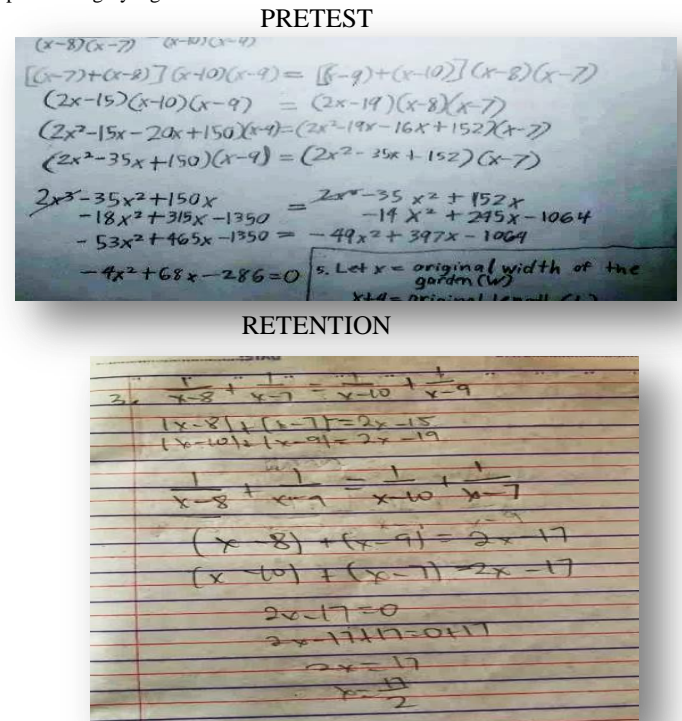 PRETEST
(x-8)(x-7) (x-10)(x-9)
[(x-7)+(x-8)](x-10)(x-9) = [(x-9)+(x-10)](x-8)(x-7)
(2x-15)(x-10)(x-9) = (2x-19)(x-8)(x-7)
(2x²-15x-20x+150)(x-9)=(2x²-19x-16x+152)(x-7)
(2x²-35x+150)(x-9) = (2x²-35x+152)(x-7)
2x³-35x²+150x = 2x³-35x²+152x
-18x²+315x-1350 -14x²+245x-1064
-53x²+465x-1350 = -49x²+397x-1064
-4x²+68x-286=0
5. Let x = original width of the
garden (W)
x+4= original length
RETENTION
3. 1/x-8 + 1/x-7 = 1/x-10 + 1/x-9
(x-8)+(x-7)=2x-15
(x-10)+(x-9)=2x-19
1/x-8 + 1/x-9 = 1/x-10 + 1/x-7
(x-8)+(x-9)=2x-17
(x-10)+(x-7)=2x-17
2x-17=0
2x-17+17=0+17
2x=17
x=17/2